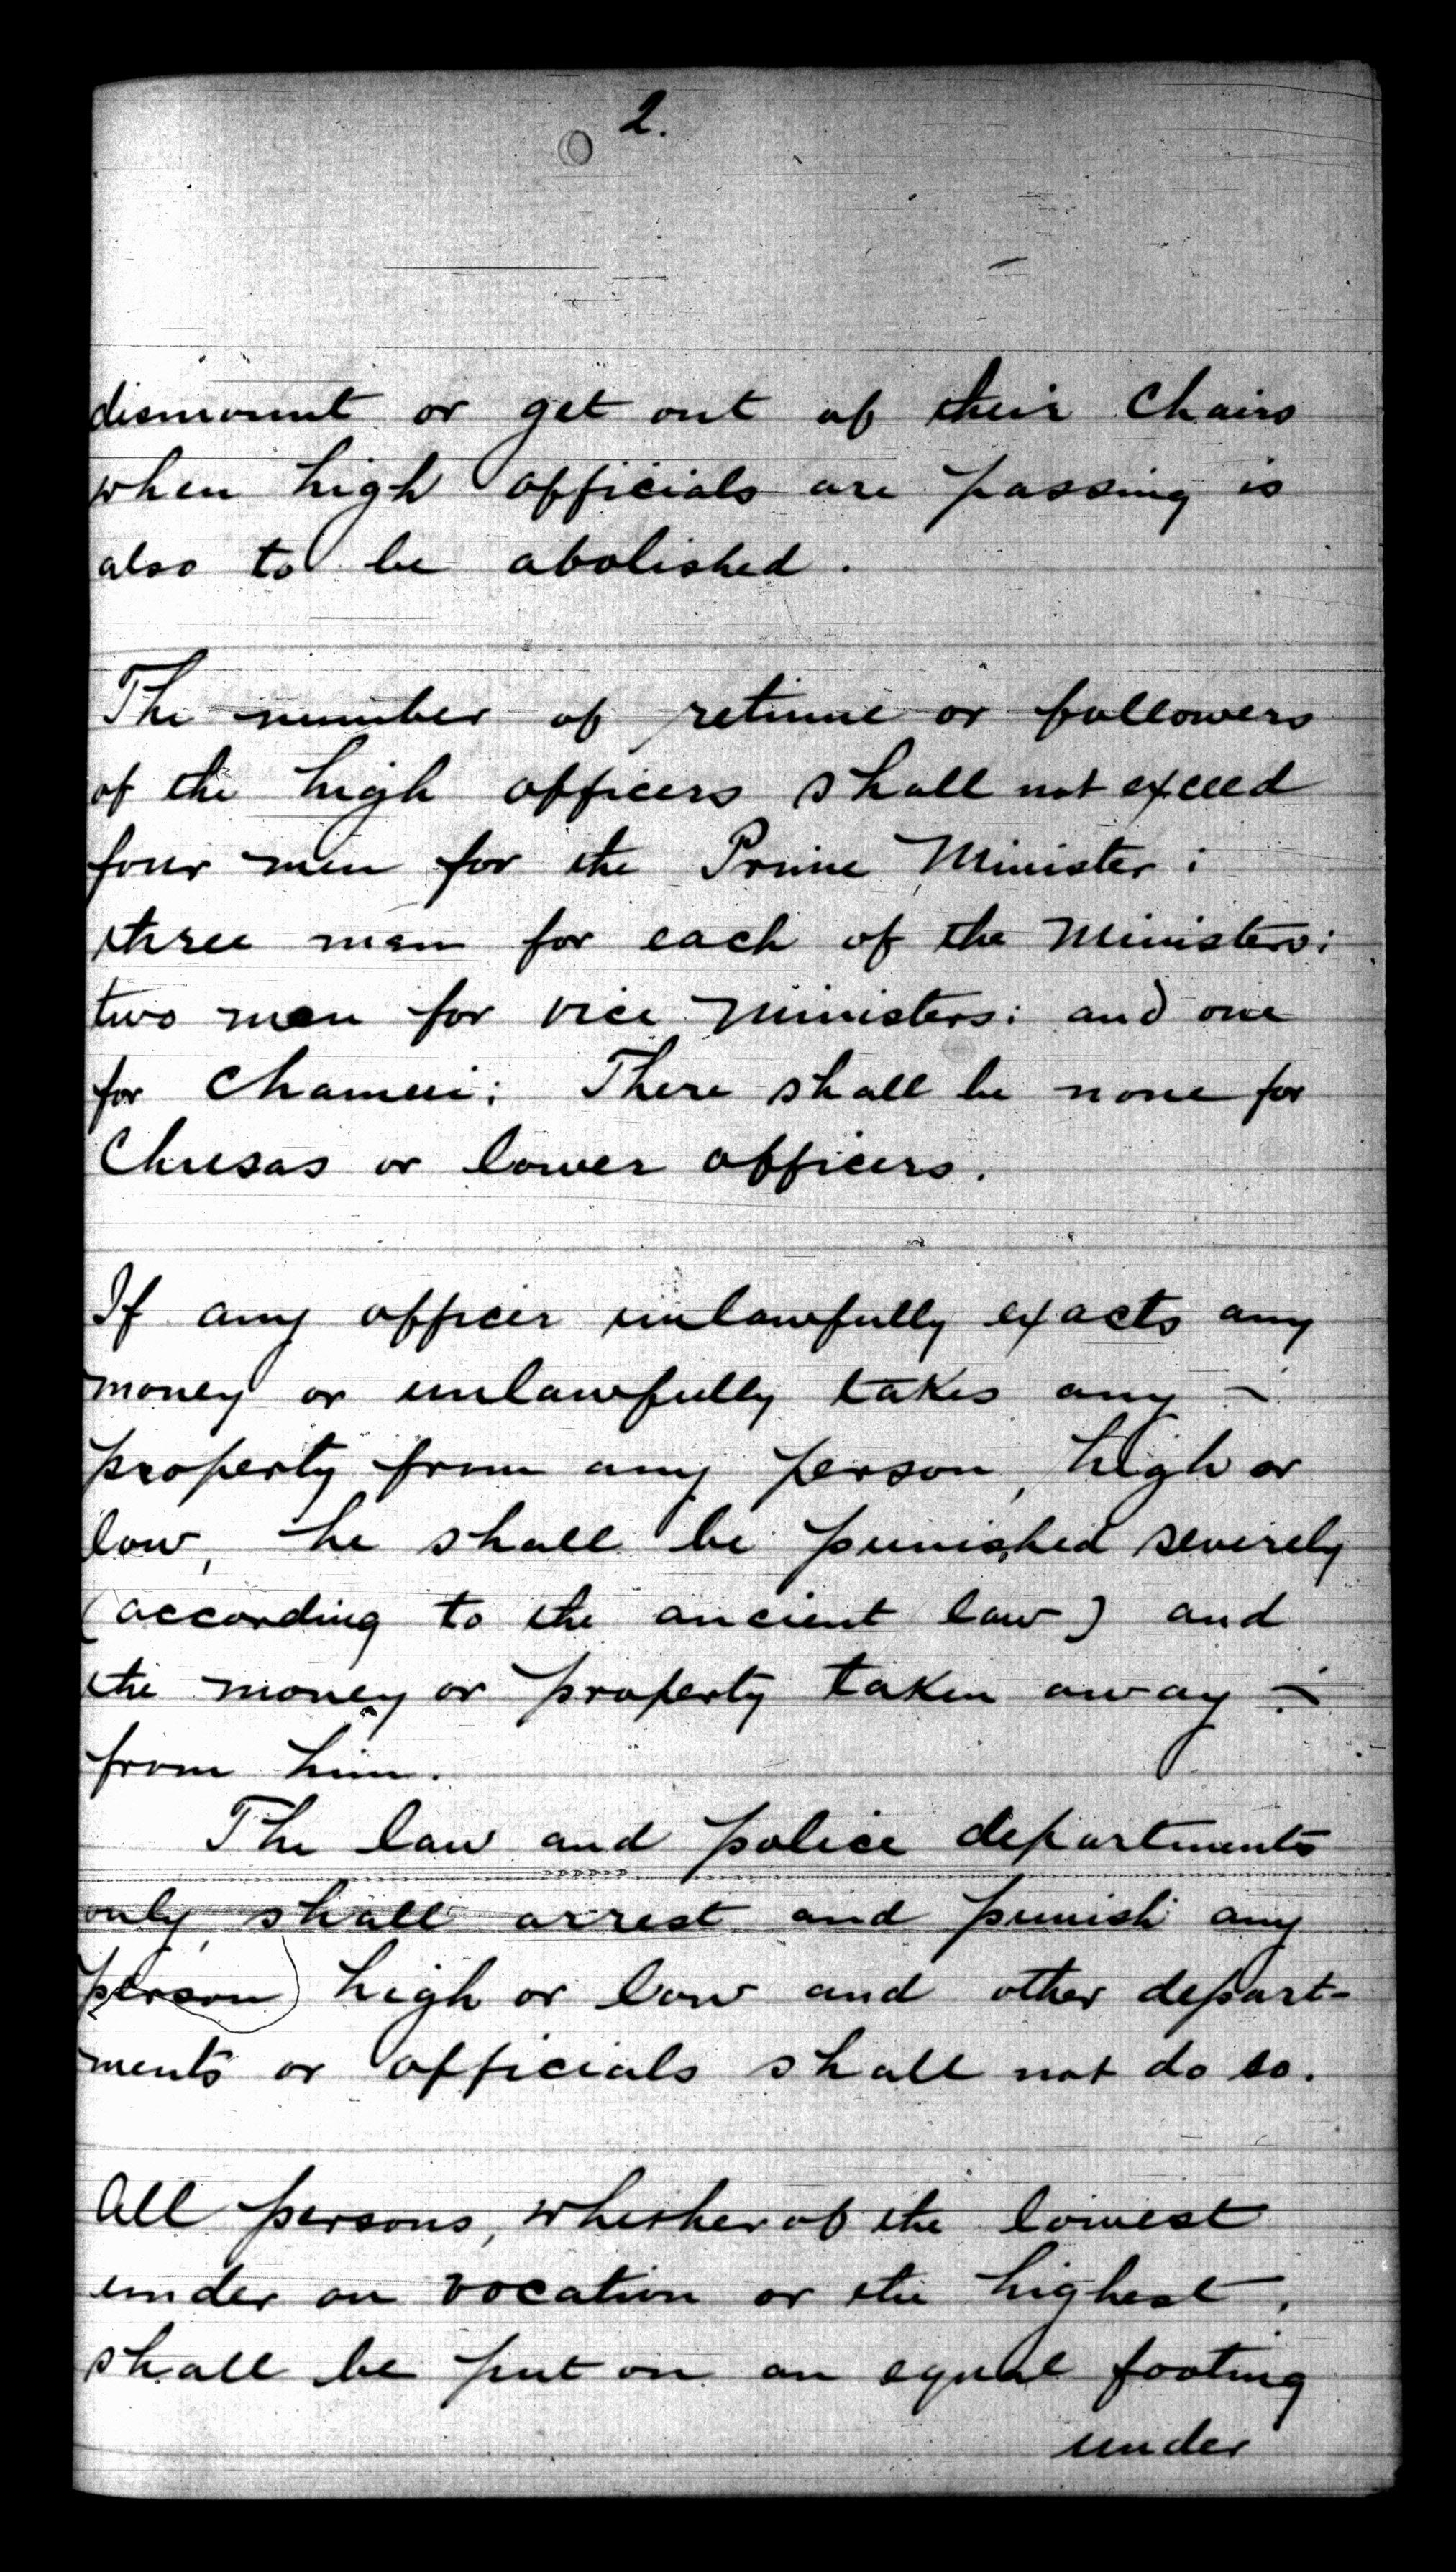 2.
dismount or get out of their Chairs
when high officials are passing is
also to be abolished.
The number of retinue or followers
of the high officers shall not exceed
four men for the Prime Minister:
three men for each of the Ministers:
two men for vice Ministers: and one
for Chamui: There shall be none for
Chusas or lower officers.
If any officer unlawfully exacts any
money or unlawfully takes any -
property from any person, high or
low, he shall be punished severely
(according to the ancient law) and
the money or property taken away -
from him.
The law and police departments
only, shall arrest and punish any
person high or low and other depart-
ments or officials shall not do so.
All persons, whether of the lowest
under on vocation or the highest,
shall be put on an equal footing
under